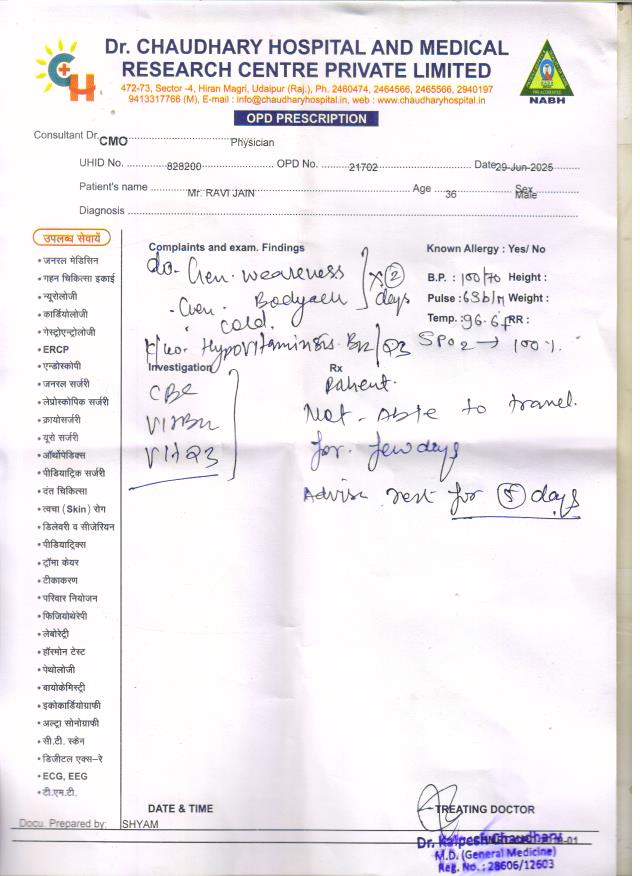 Dr. CHAUDHARY HOSPITAL AND MEDICAL
RESEARCH CENTRE PRIVATE LIMITED
472-73, Sector -4, Hiran Magri, Udaipur (Raj.), Ph. 2460474, 2464566, 2465566, 2940197
9413317766 (M), E-mail : info@chaudharyhospital.in, web : www.chaudharyhospital.in
NABH
OPD PRESCRIPTION
Consultant Dr. CMO Physician
UHID No. 828200 OPD No. 21702 Date 29-Jun-2025
Patient's name Mr. RAVI JAIN Age 36 Sex Male
Diagnosis
उपलब्ध सेवायें
• जनरल मेडिसिन
• गहन चिकित्सा इकाई
• न्यूरोलोजी
• कार्डियोलॉजी
• गेस्ट्रोएन्ट्रोलॉजी
• ERCP
• एन्डोस्कोपी
• जनरल सर्जरी
• लेप्रोस्कोपिक सर्जरी
• क्रायोसर्जरी
• यूरो सर्जरी
• ऑर्थोपेडिक्स
• पीडियाट्रिक सर्जरी
• दंत चिकित्सा
• त्वचा (Skin) रोग
• डिलेवरी व सीजेरियन
• पीडियाट्रिक्स
• ट्रॉमा केयर
• टीकाकरण
• परिवार नियोजन
• फिजियोथेरेपी
• लेबोरेट्री
• हॉरमोन टेस्ट
• पेथोलोजी
• बायोकेमिस्ट्री
• इकोकार्डियोग्राफी
• अल्ट्रा सोनोग्राफी
• सी.टी. स्केन
• डिजीटल एक्स-रे
• ECG, EEG
• टी.एम.टी.
Complaints and exam. Findings
Gen. weakness
Gen. Bodyache
cold.
x 2 days
Hypovitaminosis. B12 / D3
Known Allergy : Yes/ No
B.P. : 100/70 Height :
Pulse : 63b/m Weight :
Temp. : 96.6F RR :
SPO2 → 100%.
Investigation
CBC
VitB12
VitD3
Rx
Patient.
Not Able to travel.
for few days
Advise rest for 5 days
DATE & TIME
TREATING DOCTOR
Docu. Prepared by: SHYAM
Dr. Kalpesh Chaudhary
M.D. (General Medicine)
Reg. No.: 28606/12603